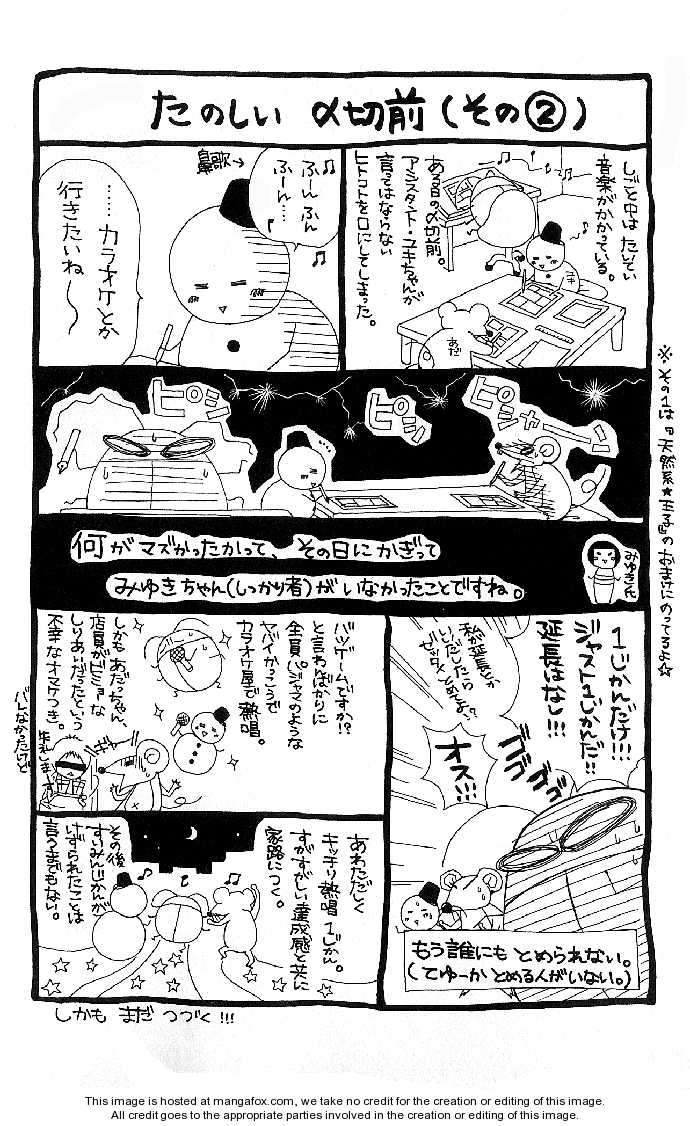 たのしい 〆切前(その②)
しごと中は たいてい
音楽がかかっている。
ある日の〆切前。
アシスタント・ユキちゃんが
言ってはならない
ヒトコトを口にしてしまった。
あだ
鼻歌→
ふーんふん
ふーん…
……カラオケとか
行きたいね〜
ピシッ
ピシッ
ピシャーン
何がマズかったかって、その日にかぎって
みゆきちゃん(しっかり者)がいなかったことですね。
みゆき氏
※その1は『天然系★王子』のおまけにのってるよ☆
1じかんだけ!!!
ジャスト1じかんだ!!
延長はなし!!!
私が延長とか
いだしたら
ゼッタイとめてよ!?
オス!!!
ゴゴゴゴゴ
もう誰にも とめられない。
(てゆーか とめる人がいない。)
バツゲームですか!?
と言わんばかりに
全員パジャマのような
ヤバイかっこうで
カラオケ屋で熱唱。
しかもあだっちゃん、
店員がビミョーな
しりあいだったという
不幸なオマケつき。
バレなかったけど
あわただしく
キッチリ熱唱1じかん。
すがすがしい達成感と共に
家路につく。
その後
すいみんじかんが
けずられたことは
言うまでもない。
しかも まだ つづく!!!
This image is hosted at mangafox.com, we take no credit for the creation or editing of this image.
All credit goes to the appropriate parties involved in the creation or editing of this image.